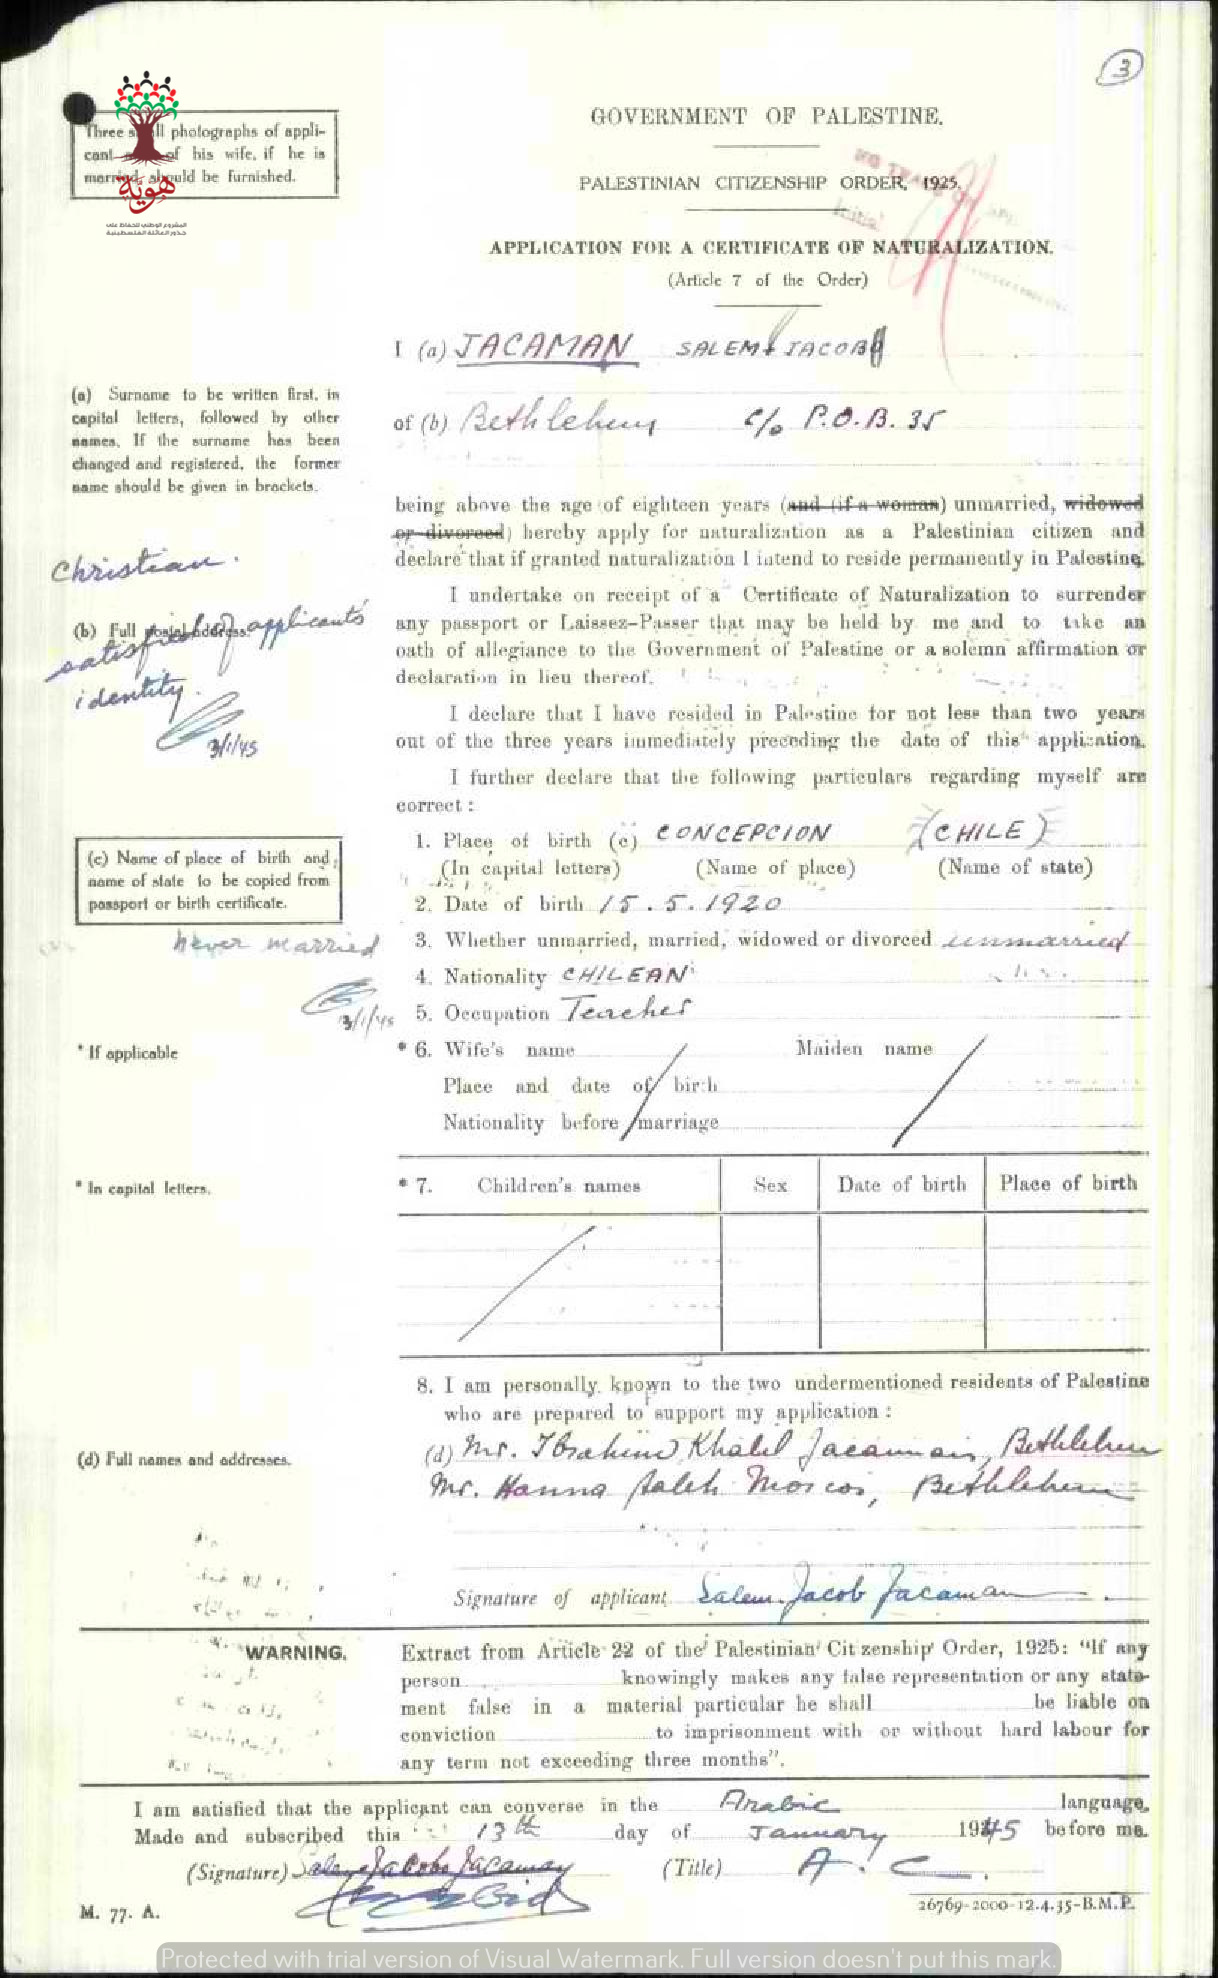 3
GOVERNMENT OF PALESTINE.
PALESTINIAN CITIZENSHIP ORDER, 1925.
APPLICATION FOR A CERTIFICATE OF NATURALIZATION.
(Article 7 of the Order)
Three small photographs of appli-
cant of his wife, if he is
married, should be furnished.
هوية
المشروع الوطني للحفاظ على
جذور العائلة الفلسطينية
NO
Initial
I (a) JACAMAN SALEM JACOBO
(a) Surname to be written first, in
capital letters, followed by other
names. If the surname has been
changed and registered, the former
name should be given in brackets.
of (b) Bethlehem c/o P.O.B. 35
being above the age of eighteen years (and (if a woman) unmarried, widowed
or divorced) hereby apply for naturalization as a Palestinian citizen and
declare that if granted naturalization I intend to reside permanently in Palestine.
Christian.
(b) Full postal address.
satisfied of applicants'
identity.
3/1/45
I undertake on receipt of a Certificate of Naturalization to surrender
any passport or Laissez-Passer that may be held by me and to take an
oath of allegiance to the Government of Palestine or a solemn affirmation or
declaration in lieu thereof.
I declare that I have resided in Palestine for not less than two years
out of the three years immediately preceding the date of this application.
I further declare that the following particulars regarding myself are
correct :
(c) Name of place of birth and
name of state to be copied from
passport or birth certificate.
1. Place of birth (c) CONCEPCION (CHILE)
(In capital letters) (Name of place) (Name of state)
2. Date of birth 15.5.1920
never married
3. Whether unmarried, married, widowed or divorced unmarried
4. Nationality CHILEAN
3/1/45
5. Occupation Teacher
* If applicable
* 6. Wife's name Maiden name
Place and date of birth
Nationality before marriage
* In capital letters.
* 7. Children's names Sex Date of birth Place of birth
8. I am personally known to the two undermentioned residents of Palestine
who are prepared to support my application :
(d) Full names and addresses.
(d) Mr. Ibrahim Khalil Jacaman, Bethlehem
Mr. Hanna Saleh Morcos, Bethlehem
Signature of applicant Salem Jacob Jacaman
WARNING.
Extract from Article 22 of the Palestinian Citizenship Order, 1925: "If any
person knowingly makes any false representation or any state-
ment false in a material particular he shall be liable on
conviction to imprisonment with or without hard labour for
any term not exceeding three months".
I am satisfied that the applicant can converse in the Arabic language.
Made and subscribed this 13th day of January 1945 before me.
(Signature) Salem Jacobo Jacaman (Title) A. C.
M. 77. A.
26769-2000-12.4.35-B.M.P.
Protected with trial version of Visual Watermark. Full version doesn't put this mark.